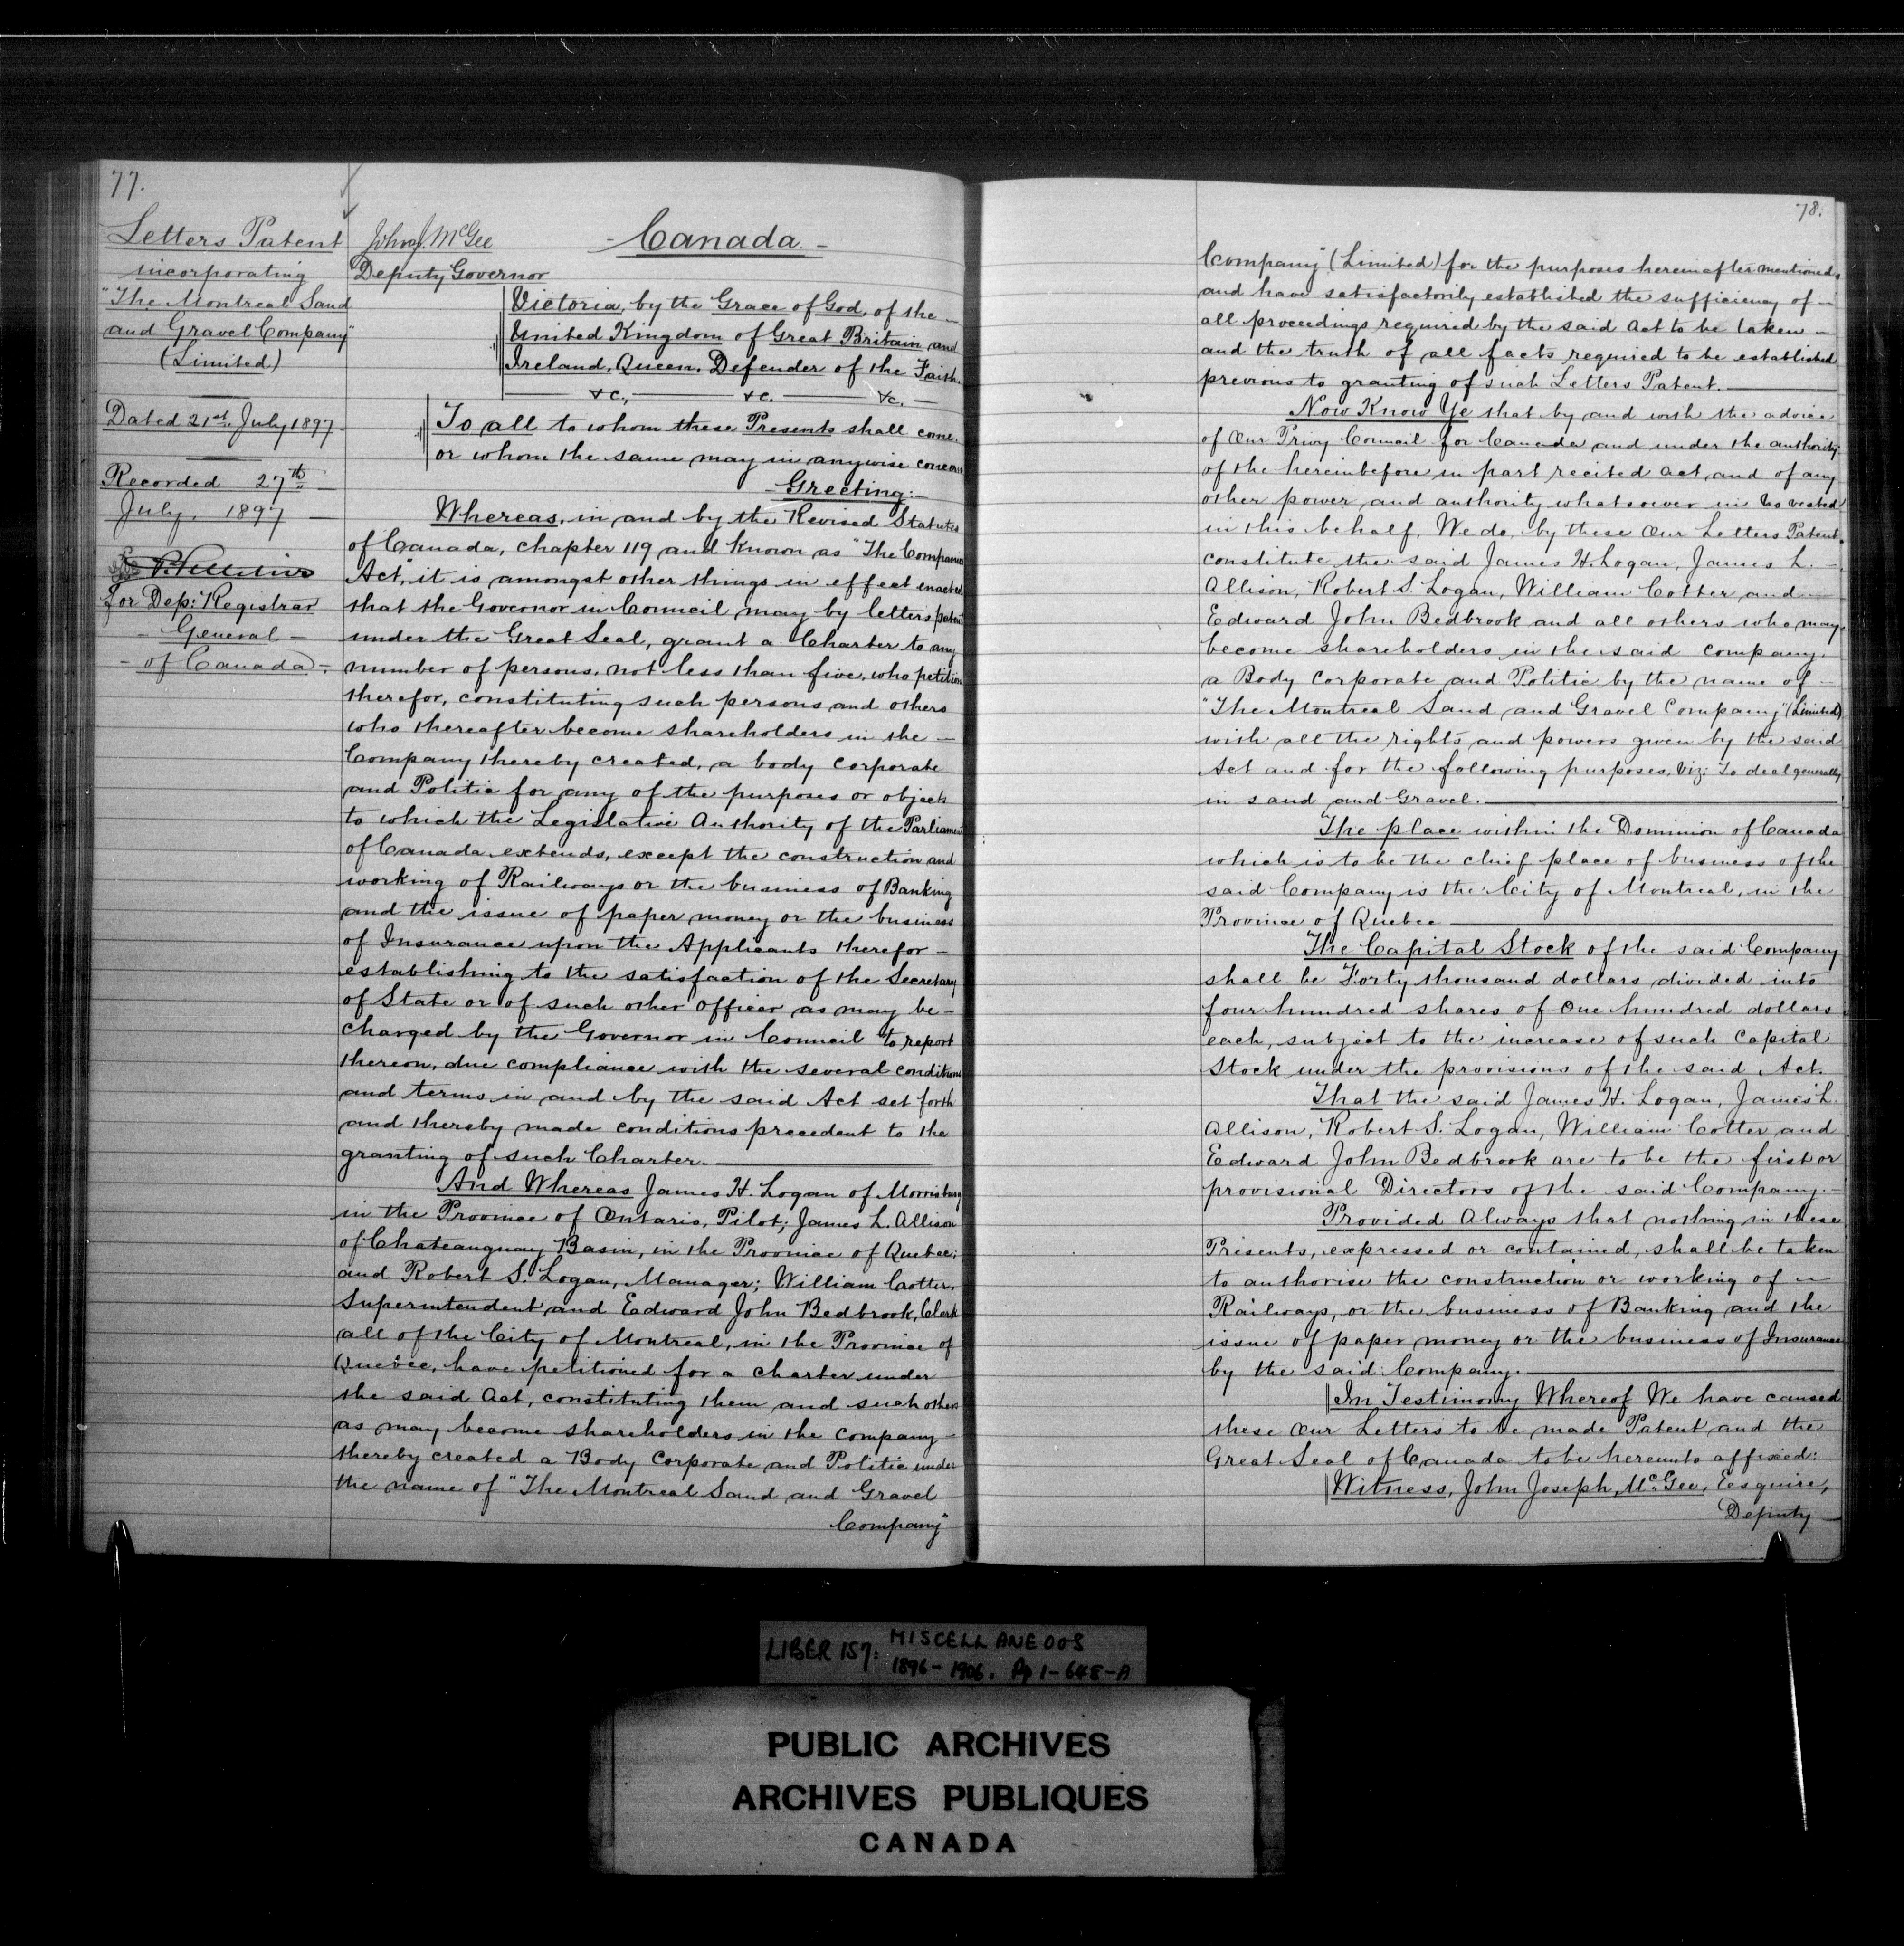 77.
Letters Patent
incorporating
"The Montreal Sand
and Gravel Company"
(Limited)
Dated 21st July 1897
Recorded 27th
July, 1897
for Dep: Registrar
- General -
- of Canada -
John J. McGee
Deputy Governor
- Canada. -
Victoria, by the Grace of God, of the -
United Kingdom of Great Britain and
Ireland, Queen, Defender of the Faith.
&c., &c. &c. -
To all to whom these Presents shall come.
or whom the same may in anywise concern
- Greeting: -
Whereas, in and by the Revised Statutes
of Canada, chapter 119 and known as "The Companies
Act," it is amongst other things in effect enacted
that the Governor in Council may by letters patent
under the Great Seal, grant a Charter to any
number of persons, not less than five, who petition
therefor, constituting such persons and others
who thereafter become shareholders in the -
Company thereby created, a body corporate
and Politic for any of the purposes or objects
to which the Legislative Authority of the Parliament
of Canada extends, except the construction and
working of Railways or the business of Banking
and the issue of paper money or the business
of Insurance upon the Applicants therefor -
establishing to the satisfaction of the Secretary
of State or of such other officer as may be -
charged by the Governor in Council to report
thereon, due compliance with the several conditions
and terms in and by the said Act set forth
and thereby made conditions precedent to the
granting of such Charter.
And Whereas James H. Logan of Morrisburg
in the Province of Ontario, Pilot; James L. Allison
of Chateauguay Basin, in the Province of Quebec;
and Robert S. Logan, Manager; William Cotter,
Superintendent and Edward John Bedbrook, Clerk
all of the City of Montreal, in the Province of
Quebec, have petitioned for a charter under
the said Act, constituting them and such others
as may become shareholders in the company -
thereby created a Body Corporate and Politic under
the name of "The Montreal Sand and Gravel
Company"
78.
Company" (Limited) for the purposes hereinafter mentioned,
and have satisfactorily established the sufficiency of -
all proceedings required by the said Act to be taken -
and the truth of all facts required to be established
previous to granting of such Letters Patent.
Now Know Ye that by and with the advice
of Our Privy Council for Canada and under the authority
of the hereinbefore in part recited Act, and of any
other power and authority whatsoever in Us vested
in this behalf, We do, by these Our Letters Patent,
constitute the said James H. Logan, James L. -
Allison, Robert S. Logan, William Cotter and
Edward John Bedbrook and all others who may
become shareholders in the said company
a Body corporate and Politic by the name of -
"The Montreal Sand and Gravel Company" (Limited)
with all the rights and powers given by the said
Act and for the following purposes, viz: To deal generally
in sand and Gravel.
The place within the Dominion of Canada
which is to be the chief place of business of the
said Company is the City of Montreal, in the
Province of Quebec
The Capital Stock of the said Company
shall be Forty thousand dollars divided into
four hundred shares of One hundred dollars
each, subject to the increase of such Capital
Stock under the provisions of the said Act.
That the said James H. Logan, James L.
Allison, Robert S. Logan, William Cotter and
Edward John Bedbrook are to be the first or
provisional Directors of the said Company. -
Provided Always that nothing in these
Presents, expressed or contained, shall be taken
to authorise the construction or working of -
Railways, or the business of Banking and the
issue of paper money or the business of Insurance
by the said Company.
In Testimony Whereof We have caused
these Our Letters to be made Patent and the
Great Seal of Canada to be hereunto affixed:
Witness, John Joseph McGee, Esquire,
Deputy
LIBER 157: MISCELLANEOUS
1896-1906. Pp 1-648-A
PUBLIC ARCHIVES
ARCHIVES PUBLIQUES
CANADA